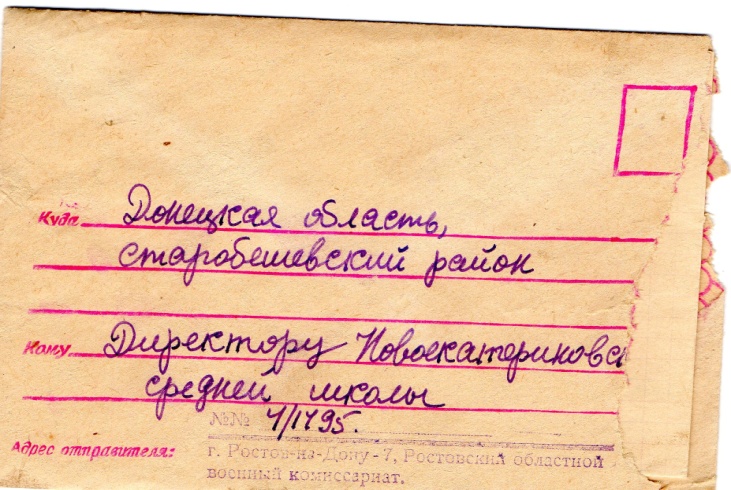 Куда Донецкая область,
старобешевский район
Кому Директору Новоекатериновск
средней школы
№№ 4/1795.
Адрес отправителя: г. Ростов-на-Дону-7, Ростовский областной
военный комиссариат.